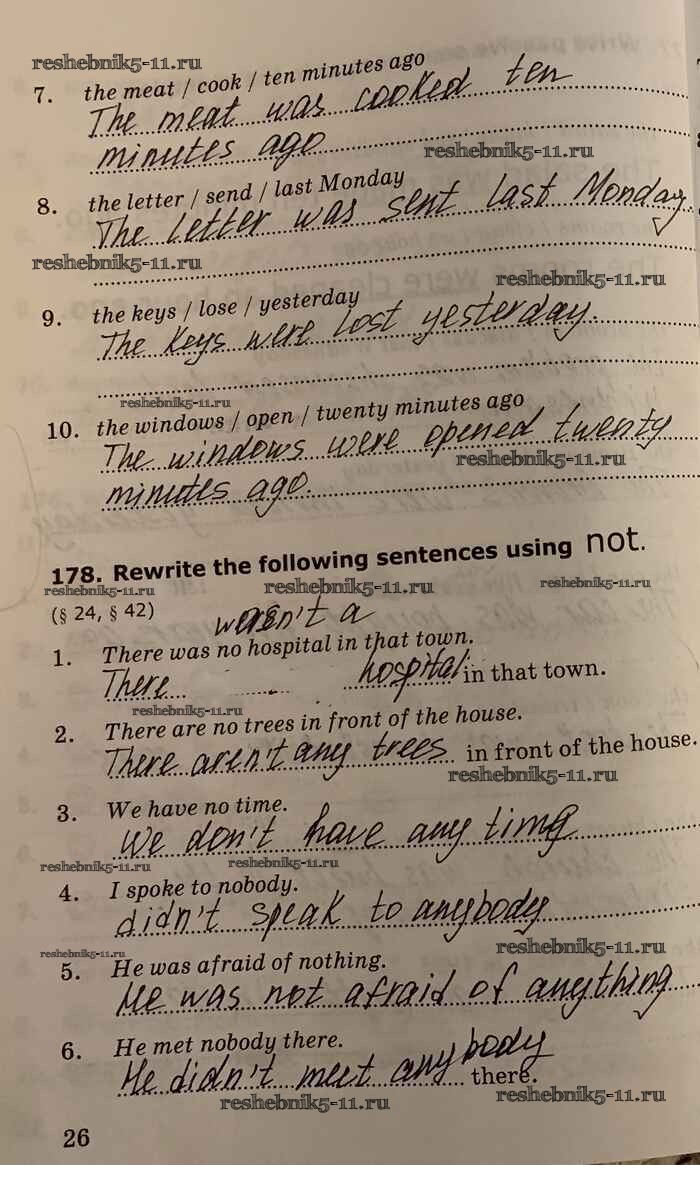 reshebnik5-11.ru
7. the meat / cook / ten minutes ago
The meat was cooked ten
minutes ago
reshebnik5-11.ru
8. the letter / send / last Monday
The letter was sent last Monday.
reshebnik5-11.ru
reshebnik5-11.ru
9. the keys / lose / yesterday
The keys were lost yesterday.
reshebnik5-11.ru
10. the windows / open / twenty minutes ago
The windows were opened twenty
reshebnik5-11.ru
minutes ago.
178. Rewrite the following sentences using not.
reshebnik5-11.ru reshebnik5-11.ru reshebnik5-11.ru
(§ 24, § 42)
wasn't a
1. There was no hospital in that town.
There hospital in that town.
reshebnik5-11.ru
2. There are no trees in front of the house.
There aren't any trees in front of the house.
reshebnik5-11.ru
3. We have no time.
We don't have any time
reshebnik5-11.ru reshebnik5-11.ru
4. I spoke to nobody.
didn't speak to anybody
reshebnik5-11.ru reshebnik5-11.ru
5. He was afraid of nothing.
He was not afraid of anything
reshebnik5-11.ru
6. He met nobody there.
He didn't meet anybody there.
reshebnik5-11.ru reshebnik5-11.ru
26